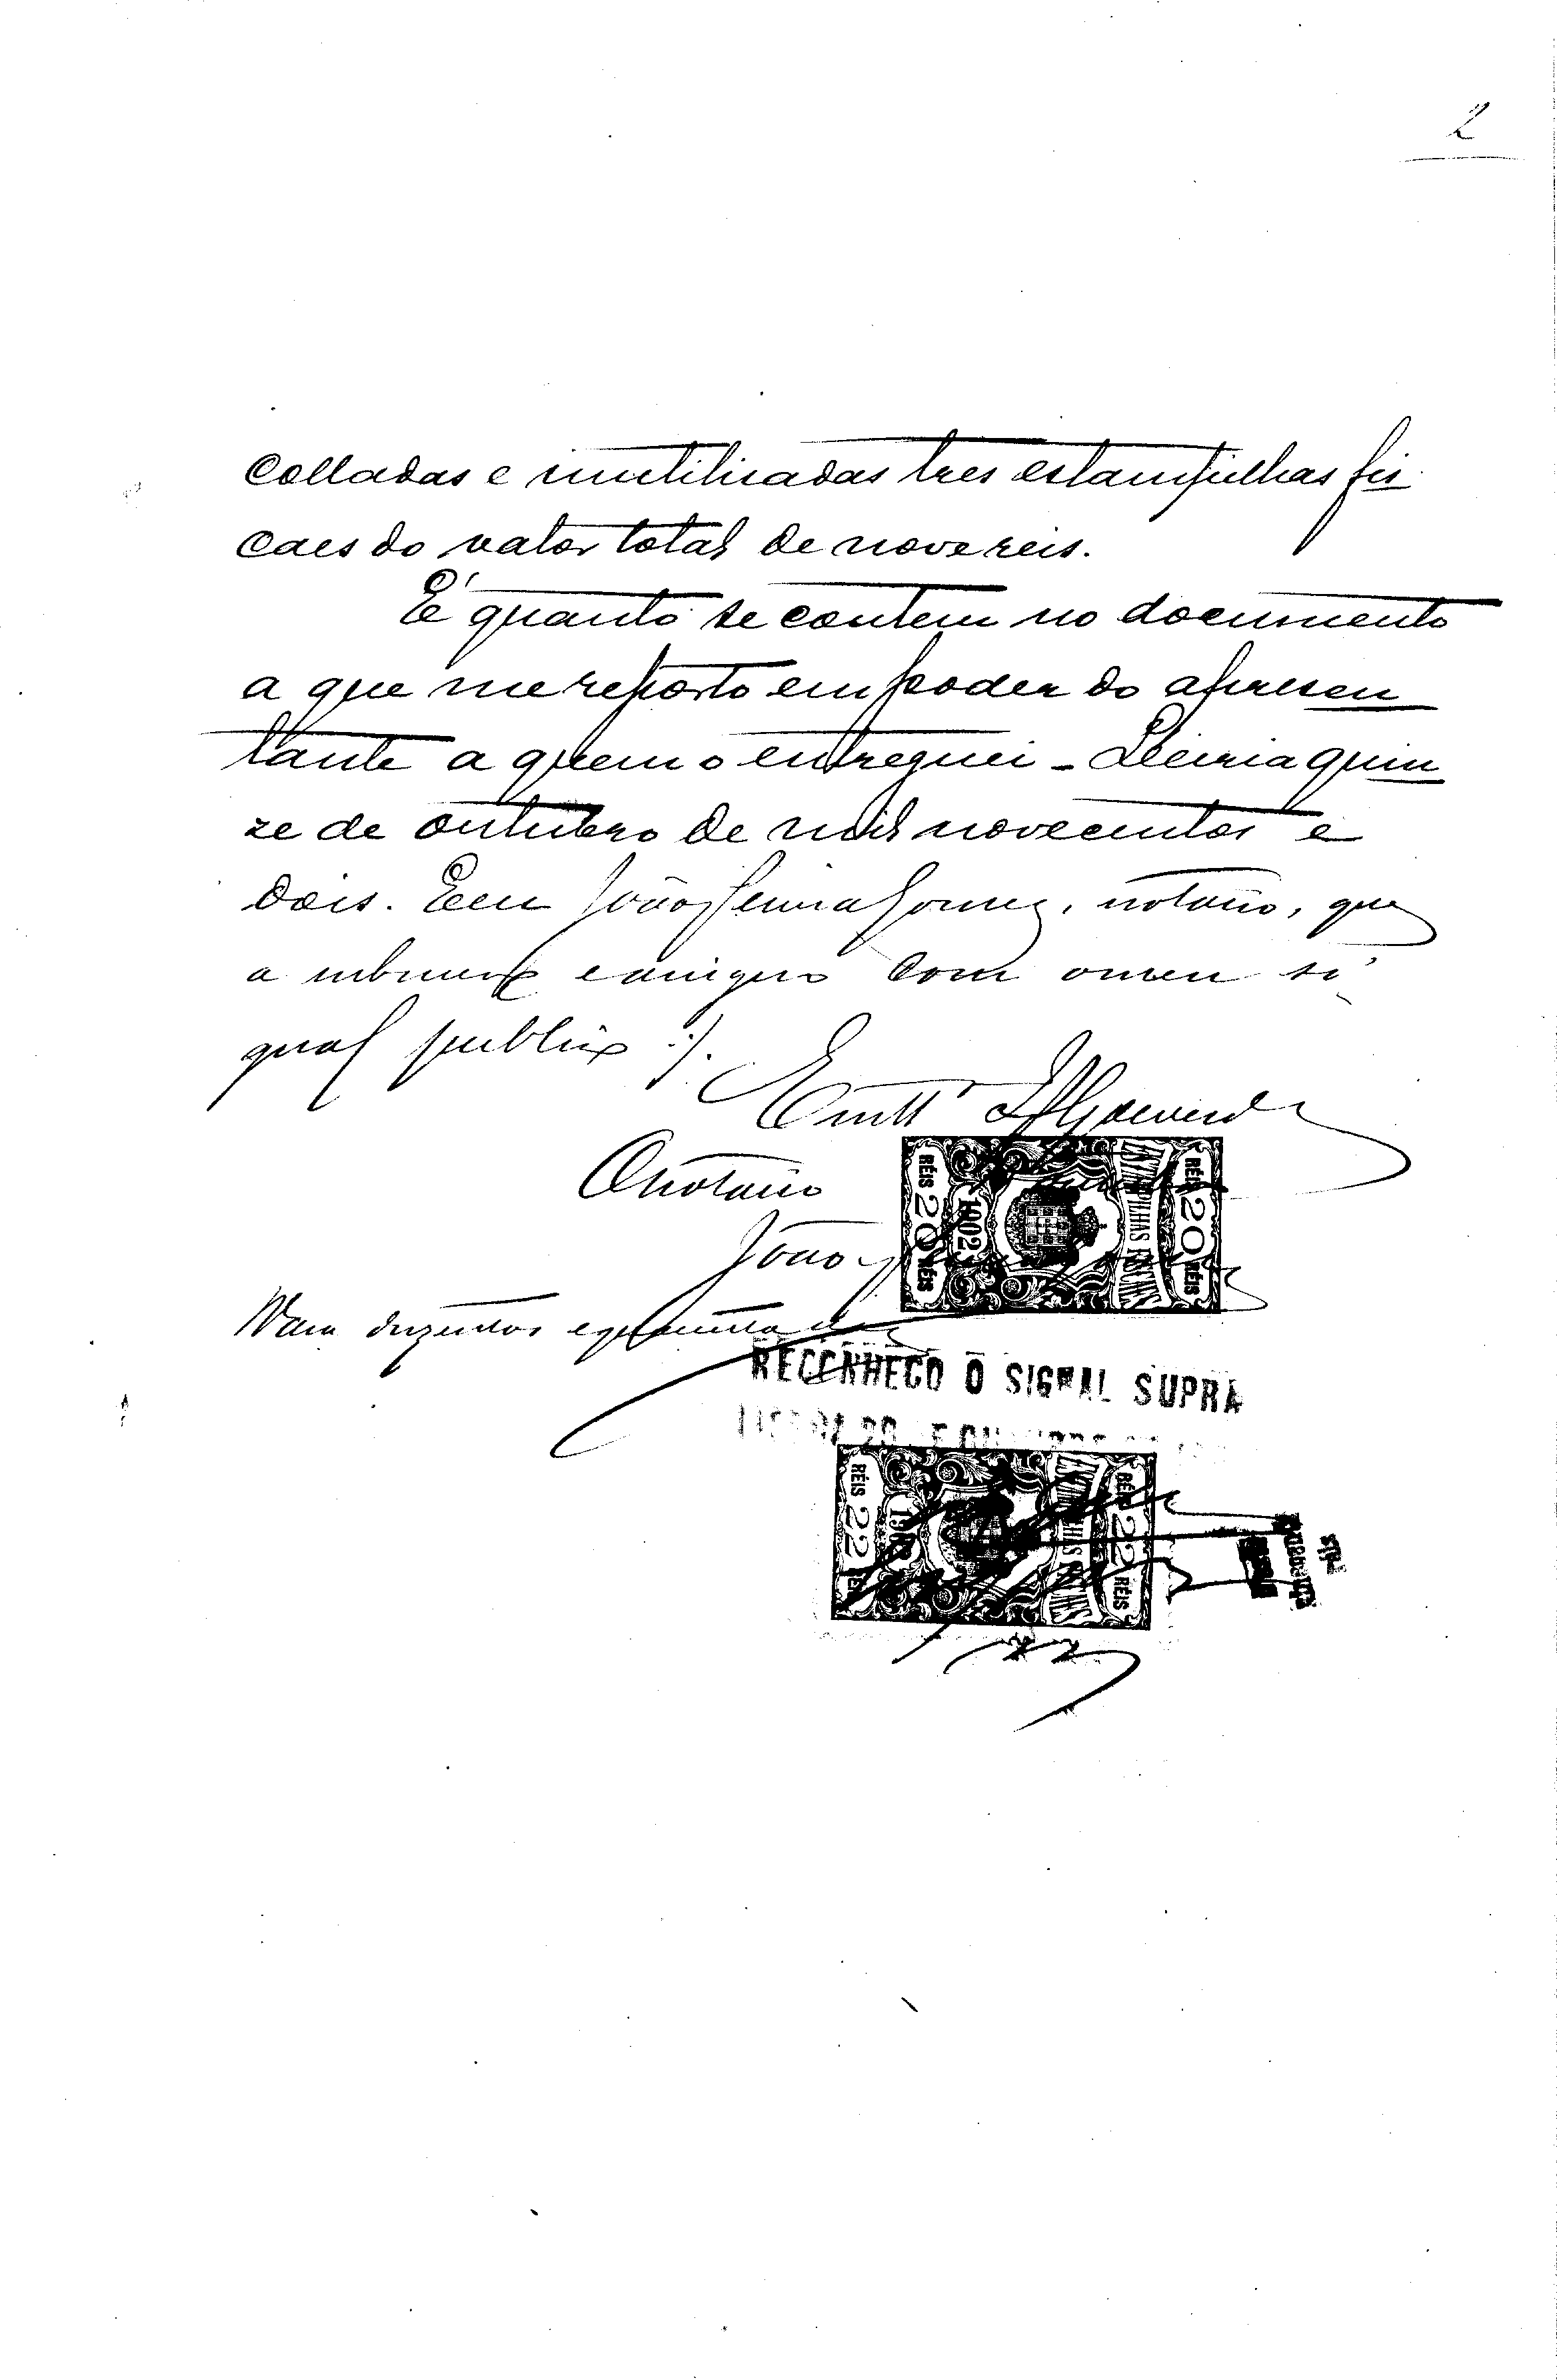 2
colladas e inutilisadas tres estampilhas fis
caes do valor total de nove reis.
É quanto se contem no documento
a que me reporto em poder do apresen
tante a quem o entreguei - Leiria quin
ze de outubro de mil novecentos e
dois. E eu João Pereira Gomes, notario, que
a subscrevo e assigno com o meu si
gnal publico :/.
O notario
João
RÉIS 20 RÉIS
1902
ESTAMPILHAS FISCAES
RÉIS 20 RÉIS
Vale duzentos e
RECONHEÇO O SIGNAL SUPRA
RÉIS 22
RÉIS 22 RÉIS